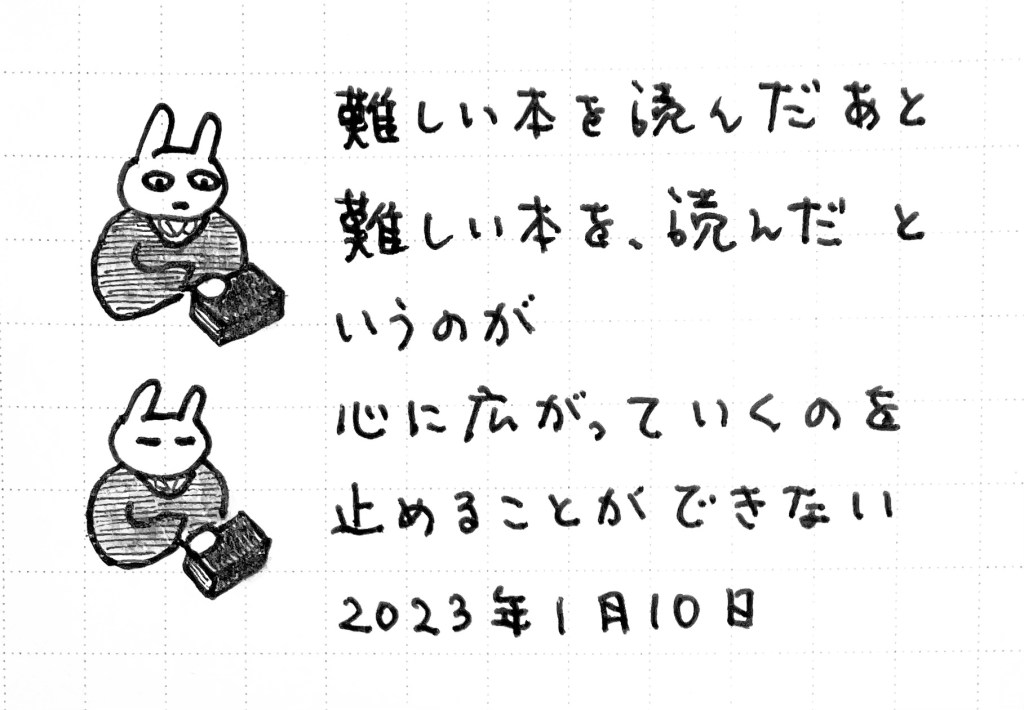 難しい本を読んだあと
難しい本を、読んだ と
いうのが
心に広がっていくのを
止めることができない
2023年1月10日